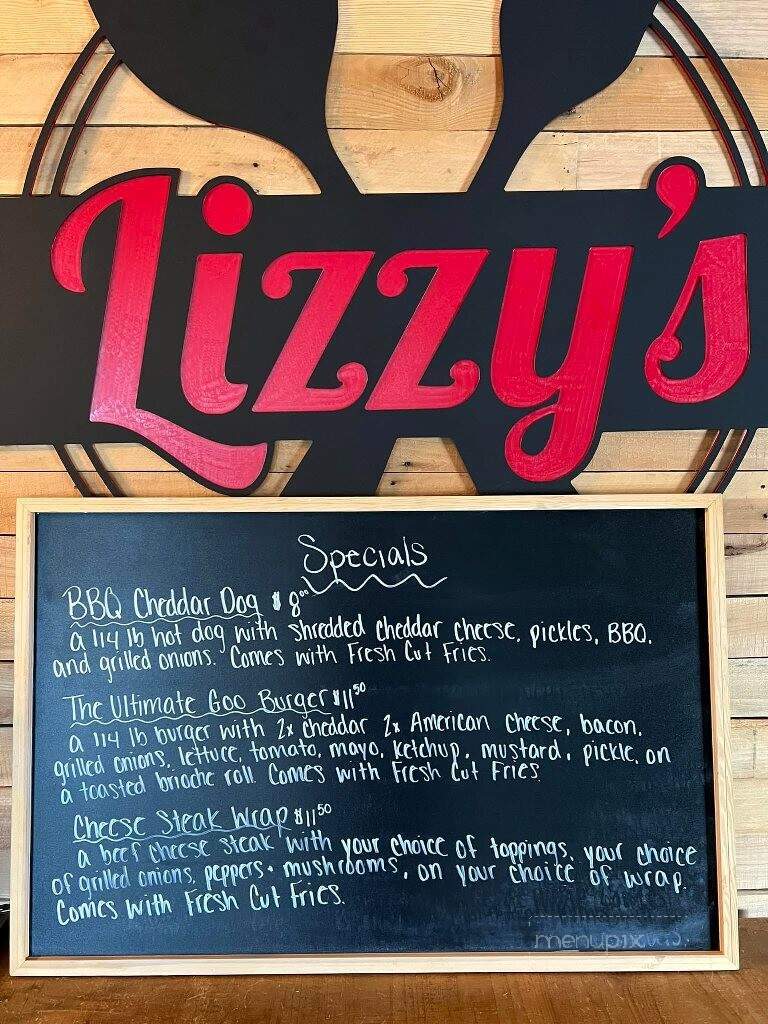 Lizzy's
Specials
BBQ Cheddar Dog $8.00
a 1/4 lb hot dog with shredded cheddar cheese, pickles, BBQ,
and grilled onions. Comes with Fresh Cut Fries.
The Ultimate Goo Burger $11.50
a 1/4 lb burger with 2x cheddar 2x American cheese, bacon,
grilled onions, lettuce, tomato, mayo, ketchup, mustard, pickle, on
a toasted brioche roll. Comes with Fresh Cut Fries
Cheese Steak Wrap $11.50
a beef cheese steak with your choice of toppings. your choice
of grilled onions, peppers + mushrooms, on your choice of wrap.
Comes with Fresh Cut Fries.
menupix